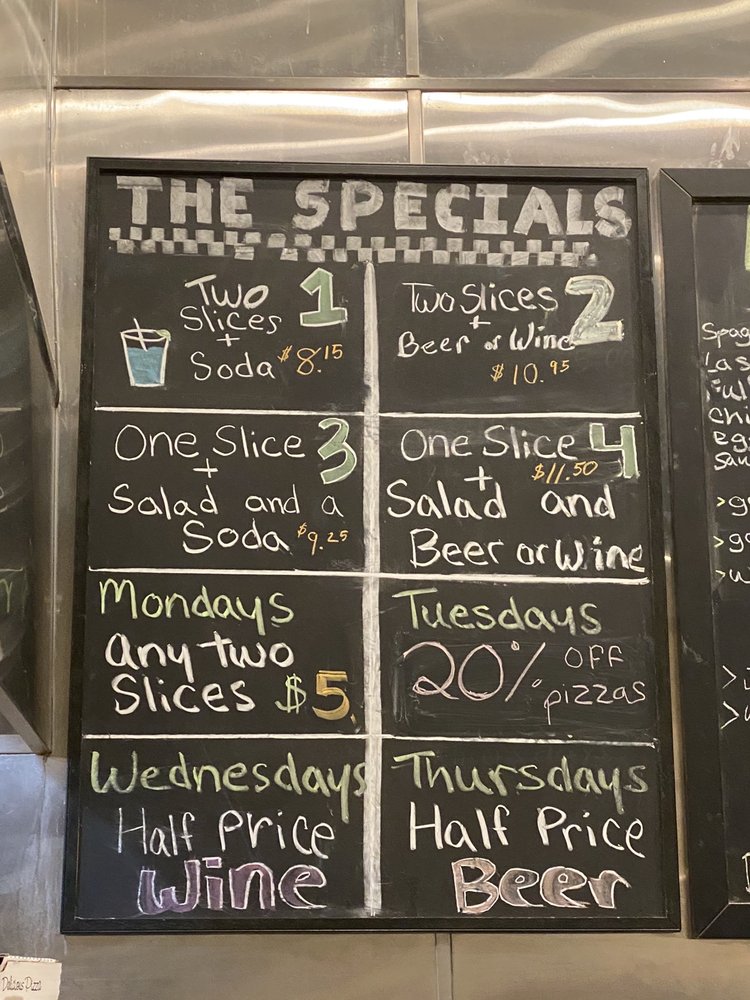 THE SPECIALS
Two 1
Slices
+
Soda $8.15
Two Slices 2
+
Beer or Wine
$10.95
One Slice 3
+
Salad and a
Soda $9.25
One Slice 4
+ $11.50
Salad and
Beer or Wine
Mondays
any two
Slices $5.
Tuesdays
20% OFF
pizzas
Wednesdays
Half Price
Wine
Thursdays
Half Price
Beer